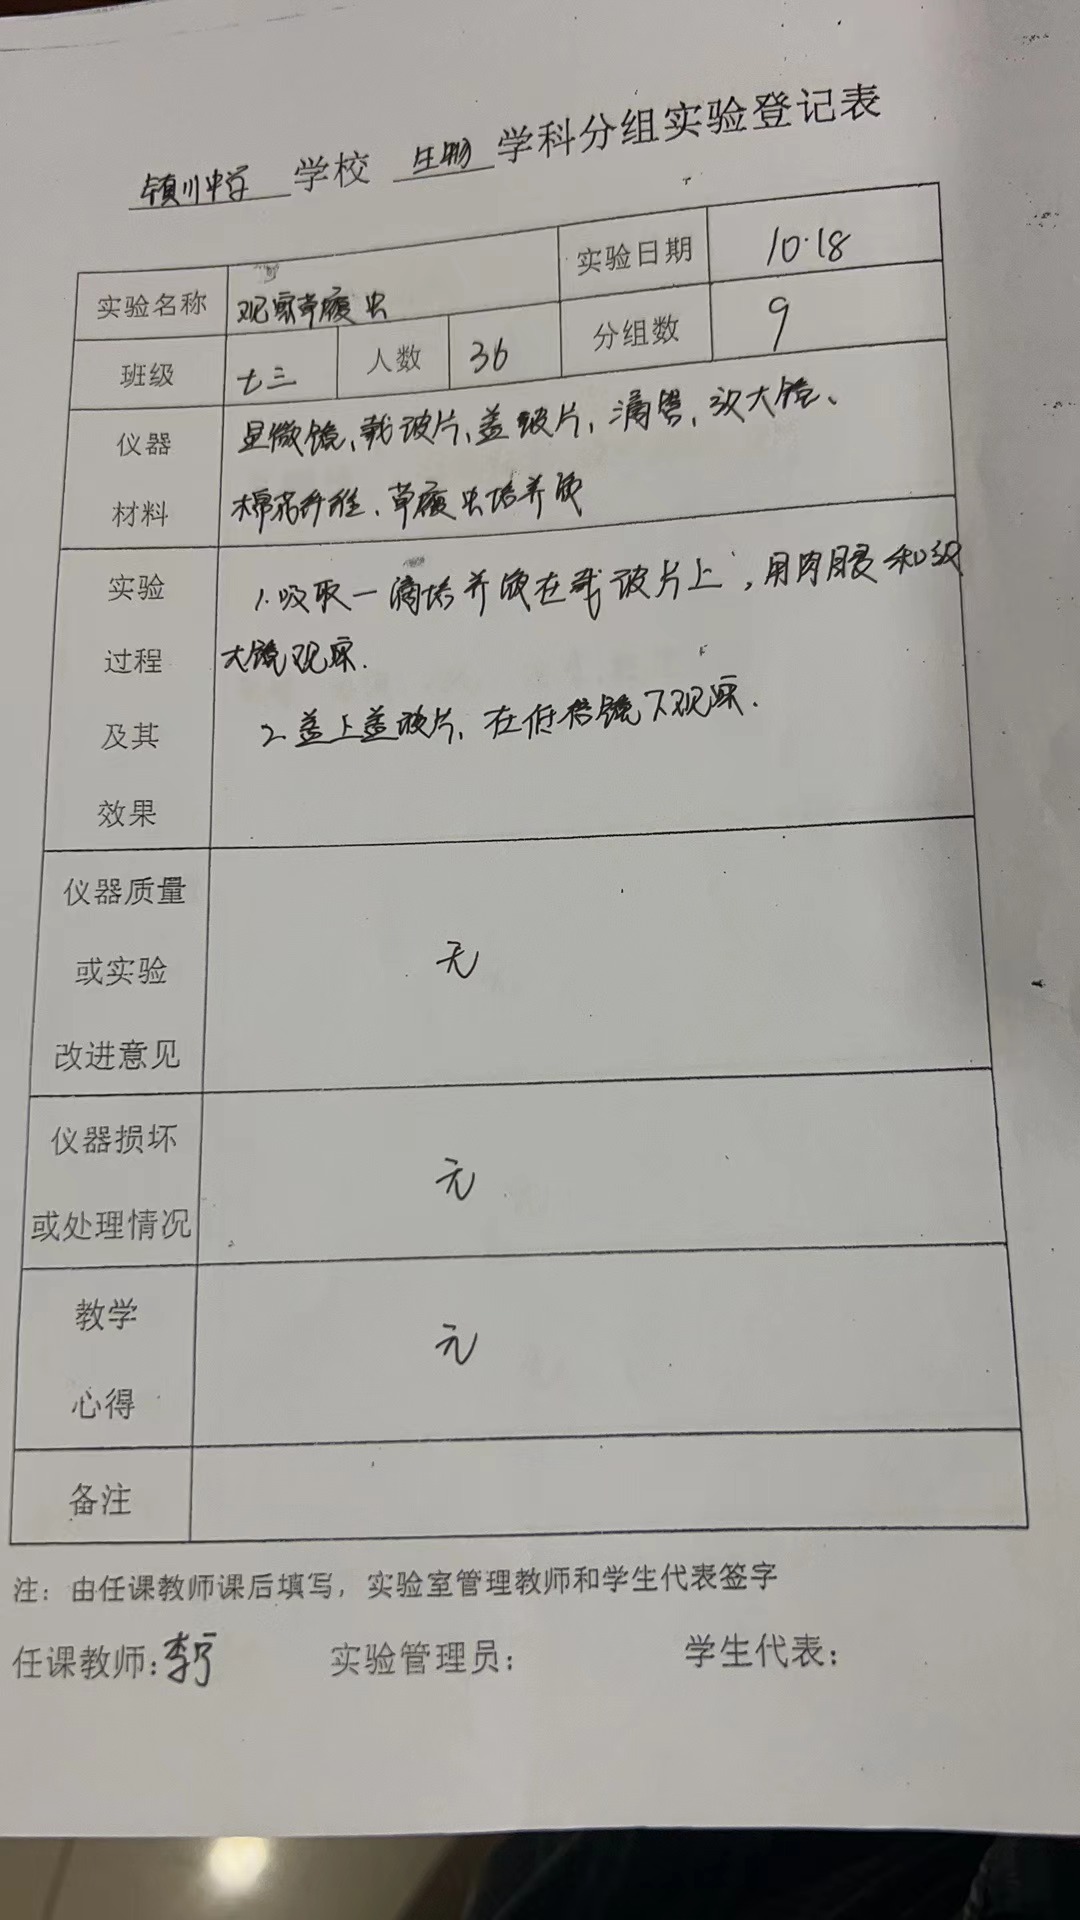 颍川中学 学校 生物 学科分组实验登记表
实验名称 观察草履虫 实验日期 10.18
班级 七三 人数 36 分组数 9
仪器 显微镜、载玻片、盖玻片，滴管，放大镜、
材料 棉花纤维、草履虫培养液
实验 1.吸取一滴培养液在载玻片上，用肉眼和放
过程 大镜观察.
及其 2.盖上盖玻片，在低倍镜下观察.
效果
仪器质量
或实验 无
改进意见
仪器损坏 无
或处理情况
教学 无
心得
备注
注：由任课教师课后填写，实验室管理教师和学生代表签字
任课教师:李宁 实验管理员: 学生代表: